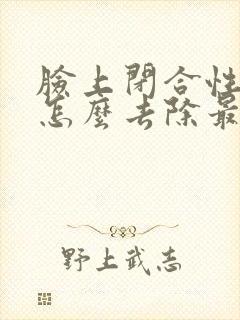 臉上閉合性
怎麼去除最
野上武志